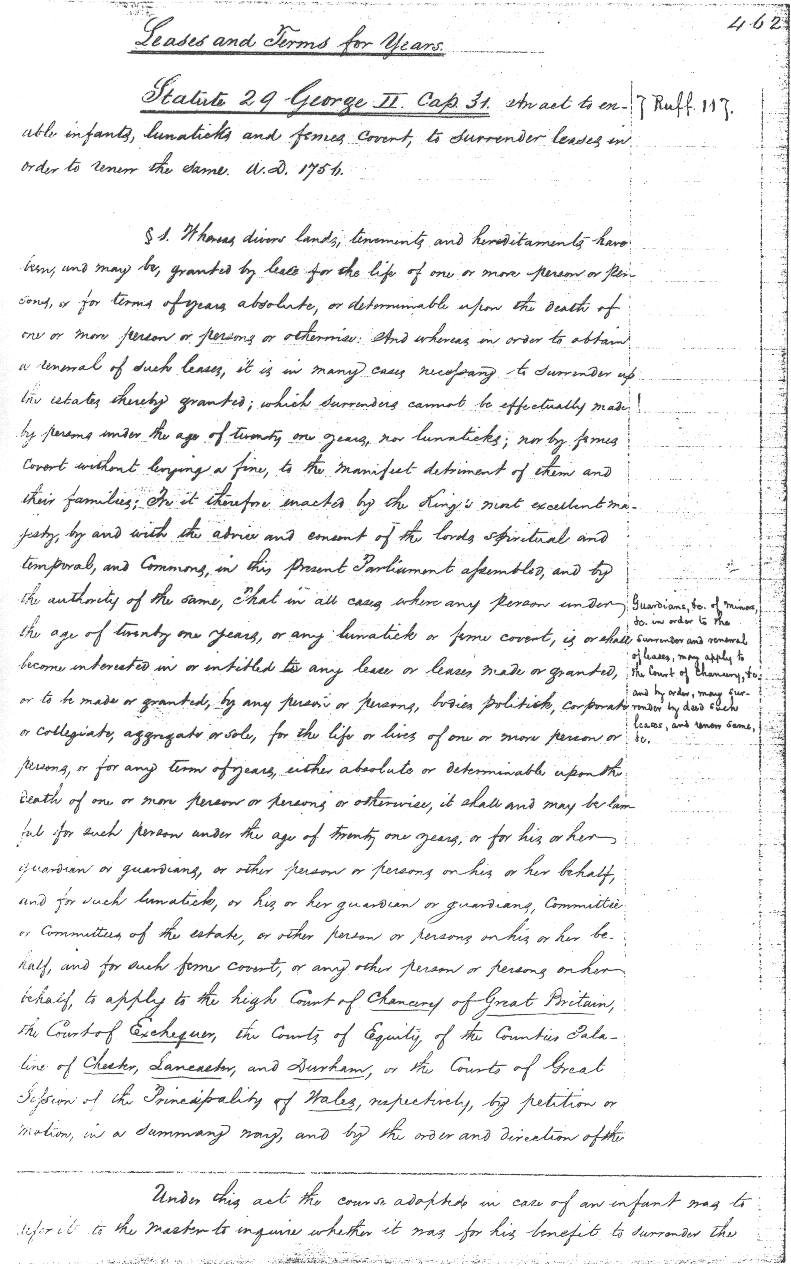 462
Leases and Terms for Years.
Statute 29 George II. Cap. 31. An act to en-
able infants, lunaticks and femes covert, to surrender leases in
order to renew the same. A.D. 1756.
7 Ruff. 117.
§ 1. Whereas divers lands, tenements and hereditaments have
been, and may be, granted by lease for the life of one or more person or per-
sons, or for terms of years absolute, or determinable upon the death of
one or more person or persons or otherwise: And whereas in order to obtain
a renewal of such leases, it is in many cases necessary to surrender up
the estates thereby granted; which surrenders cannot be effectually made
!
by persons under the age of twenty one years, nor lunaticks; nor by femes
covert without levying a fine, to the manifest detriment of them and
their families; Be it therefore enacted by the King's most excellent ma-
jesty, by and with the advice and consent of the lords spiritual and
temporal, and Commons, in this present Parliament assembled, and by
the authority of the same, That in all cases where any person under
the age of twenty one years, or any lunatick or feme covert, is or shall
become interested in or entitled to any lease or leases made or granted,
or to be made or granted, by any person or persons, bodies politick, corporate
or collegiate, aggregate or sole, for the life or lives of one or more person or
persons, or for any term of years, either absolute or determinable upon the
death of one or more person or persons or otherwise, it shall and may be law-
ful for such person under the age of twenty one years, or for his or her
guardian or guardians, or other person or persons on his or her behalf,
and for such lunatick, or his or her guardian or guardians, Committee
or Committees of the estate, or other person or persons on his or her be-
half, and for such feme covert, or any other person or persons on her
behalf, to apply to the high Court of Chancery of Great Britain,
the Court of Exchequer, the Courts of Equity, of the Counties Pala-
tine of Chester, Lancaster, and Durham, or the Courts of Great
Session of the Principality of Wales, respectively, by petition or
motion, in a summary way, and by the order and direction of the
Guardians, &c. of minors,
&c. in order to the
surrender and renewal
of leases, may apply to
the Court of Chancery, &c.
and by order, may sur-
render by deed such
leases, and renew same,
&c.
Under this act the course adopted in case of an infant was to
refer it to the Master to inquire whether it was for his benefit to surrender the